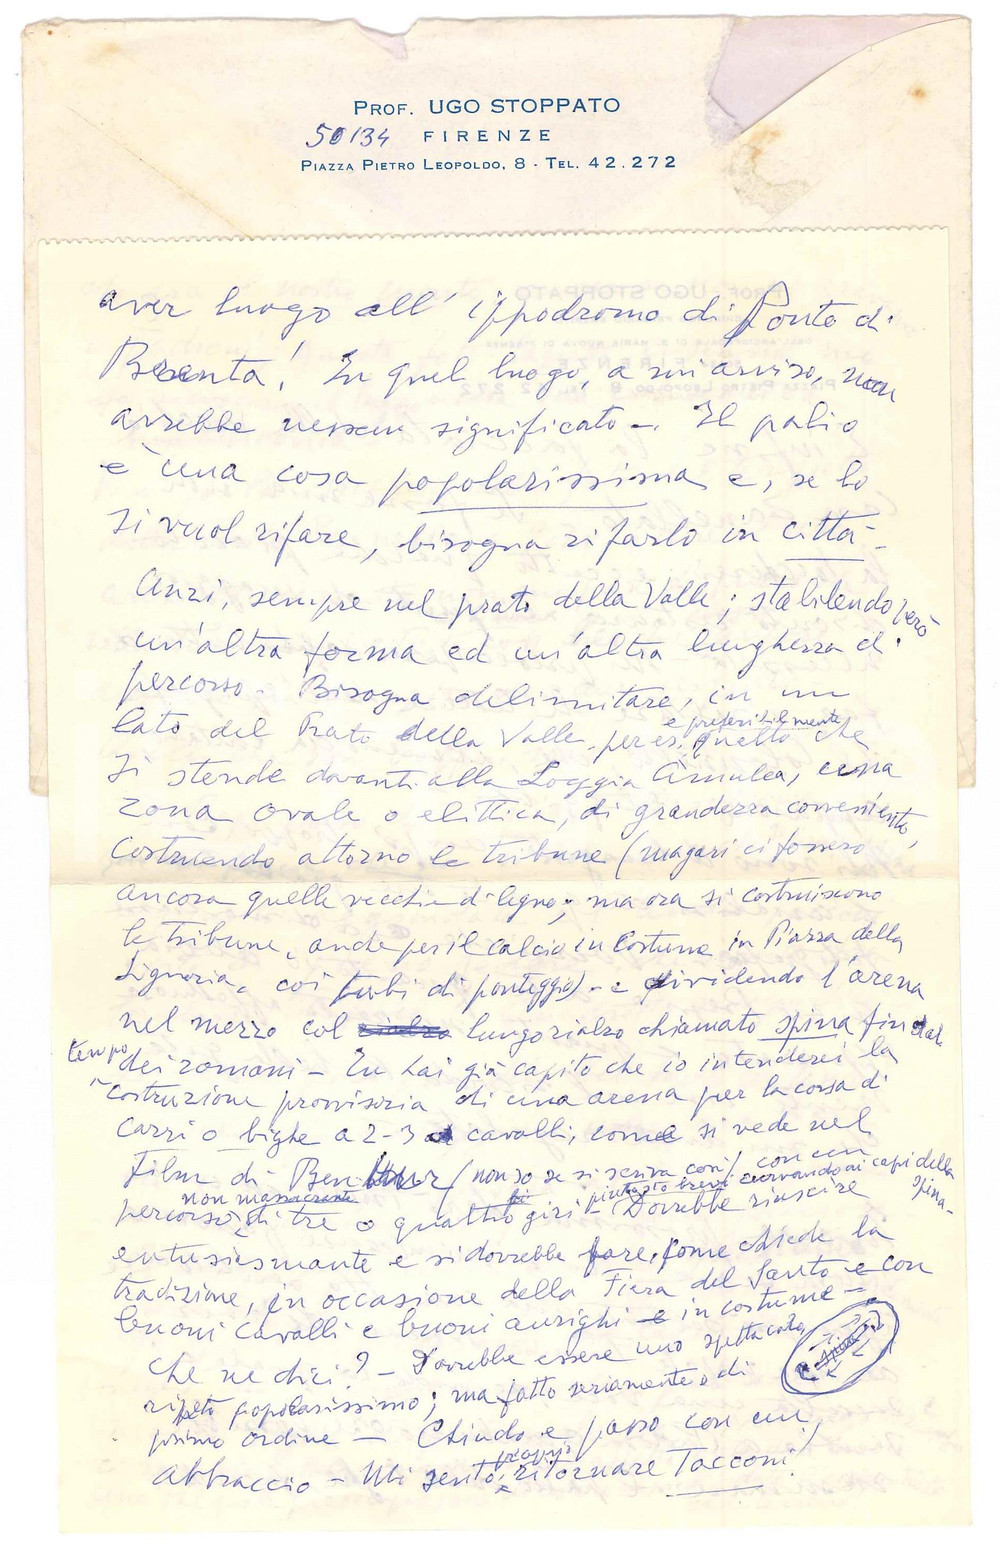 PROF. UGO STOPPATO
50134 FIRENZE
PIAZZA PIETRO LEOPOLDO, 8 - TEL. 42.272
aver luogo all'ippodromo di Ponte di
Brenta! In quel luogo, a mio avviso, non
avrebbe nessun significato -. Il palio
è una cosa popolarissima e, se lo
si vuol rifare, bisogna rifarlo in città -
Anzi, sempre nel prato della Valle; stabilendo però
un'altra forma ed un'altra lunghezza di
percorso - Bisogna delimitare, in un
lato del Prato della Valle, per es. e preferibilmente quello che
si stende davanti alla Loggia Amulea, una
zona ovale o elittica, di grandezza conveniente,
costruendo attorno le tribune (magari ci fossero
ancora quelle vecchie di legno; ma ora si costruiscono
le tribune, anche per il calcio in Costume in Piazza della
Signoria, coi tubi di ponteggio) - e dividendo l'arena
nel mezzo col lungo rialzo chiamato spina fin dal
tempo dei romani - Tu hai già capito che io intenderei la
costruzione provvisoria di una arena per la corsa di
carri o bighe a 2-3 cavalli, come si vede nel
Film di Ben Hur (non so se si scriva così) con un
percorso non massacrante di tre o quattro giri piuttosto brevi curvando ai capi della spina -
Dovrebbe riuscire
entusiasmante e si dovrebbe fare, come chiede la
tradizione, in occasione della Fiera del Santo e con
buoni cavalli e buoni aurighi in costume -
Che ne dici? - Dovrebbe essere uno spettacolo,
ripeto popolarissimo; ma fatto seriamente, di
primo ordine - Chiudo e passo con un
abbraccio - Mi sento proprio ritornare Tacconi!
spina